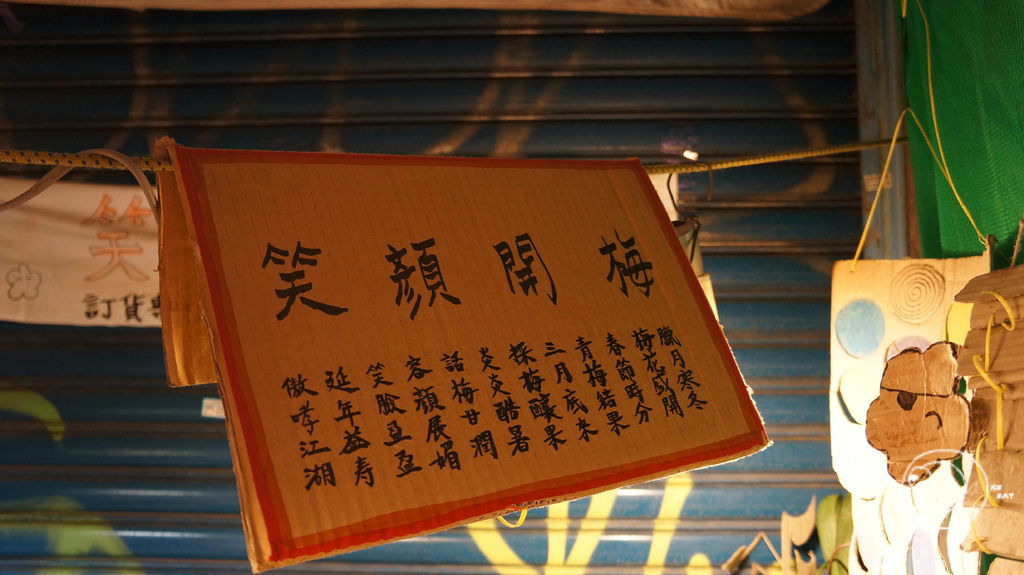 梅開顏笑
臘月寒冬
梅花盛開
春節時分
青梅結果
三月底來
採梅釀果
炎炎酷暑
話梅甘潤
容顏展媚
笑臉盈盈
延年益寿
傲哮江湖
笑
訂貨